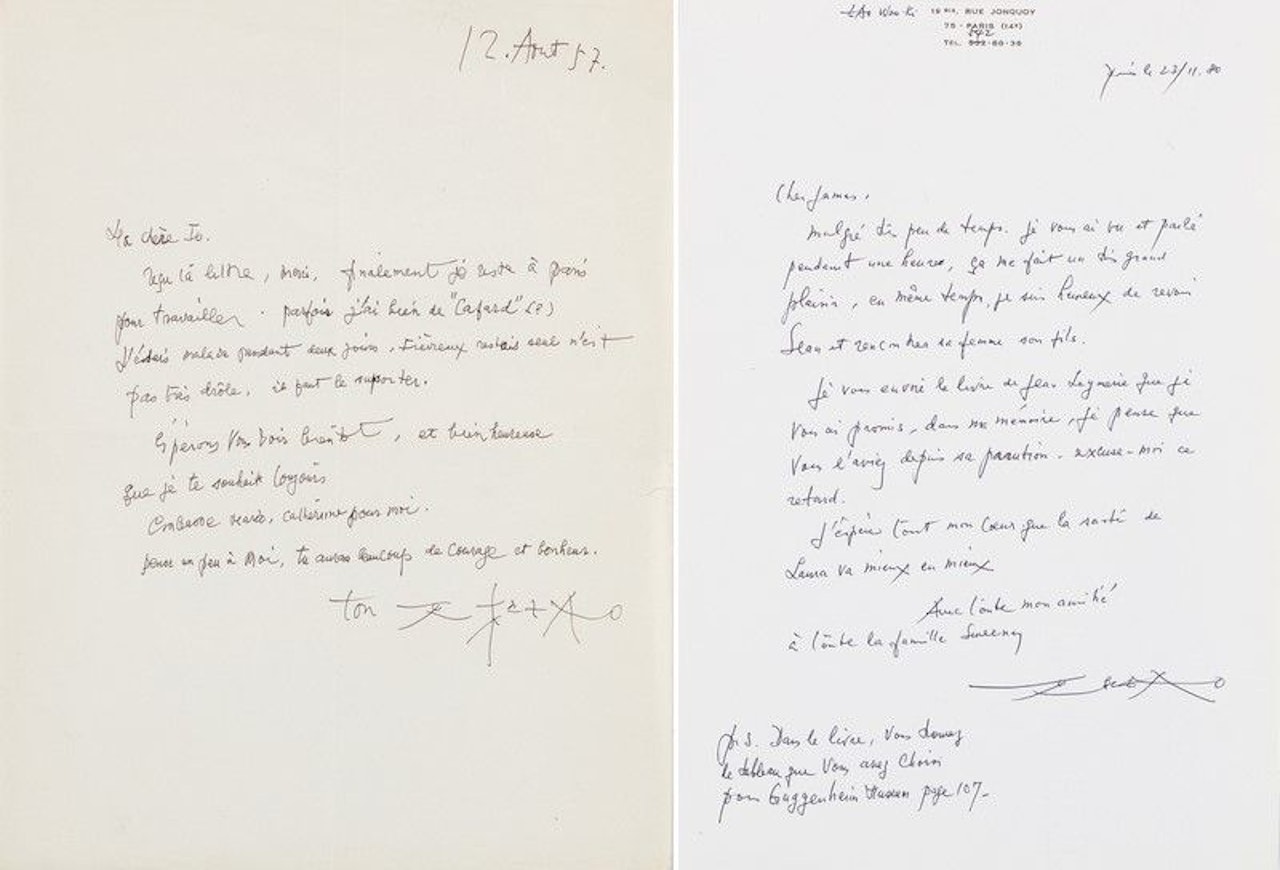 12. Aout 57.
Ma chère Io.
reçu ta lettre, merci, finalement je reste à paris
pour travailler. parfois j'ai bien de "Cafard" (?)
J'étais malade pendant deux jours, fièvreux restais seul n'est
pas très drôle, il faut le suporter.
Espérons Vous voir bientôt, et bien heureuse
que je te souhait toujours
Embrasse marie, catherine pour moi.
pense un peu à Moi, tu auras beaucoup de Courage et bonheur.
ton
ZAO Wou-Ki 19 BIS, RUE JONQUOY
75 - PARIS (14e)
542
TEL. 532-60-36
Paris le 23/11.80
Cher James,
malgré très peu de temps. je vous ai vu et parlé
pendant une heures, ça me fait un très grand
plaisir, en même temps, je suis heureux de revoir
Sean et rencontrer sa femme son fils.
Je vous envoie le livre de Jean Leymarie que je
Vous ai promis, dans ma mémoire, je pense que
Vous l'aviez depuis sa parution. excuse-moi ce
retard.
J'éspère tout mon Cœur que la santé de
Laura va mieux en mieux
Avec toute mon amitié
à toute la famille Sweeney
p.s. Dans le livre, Vous
le tableau que Vous avez Choisi
pour Guggenheim Museum page 107-